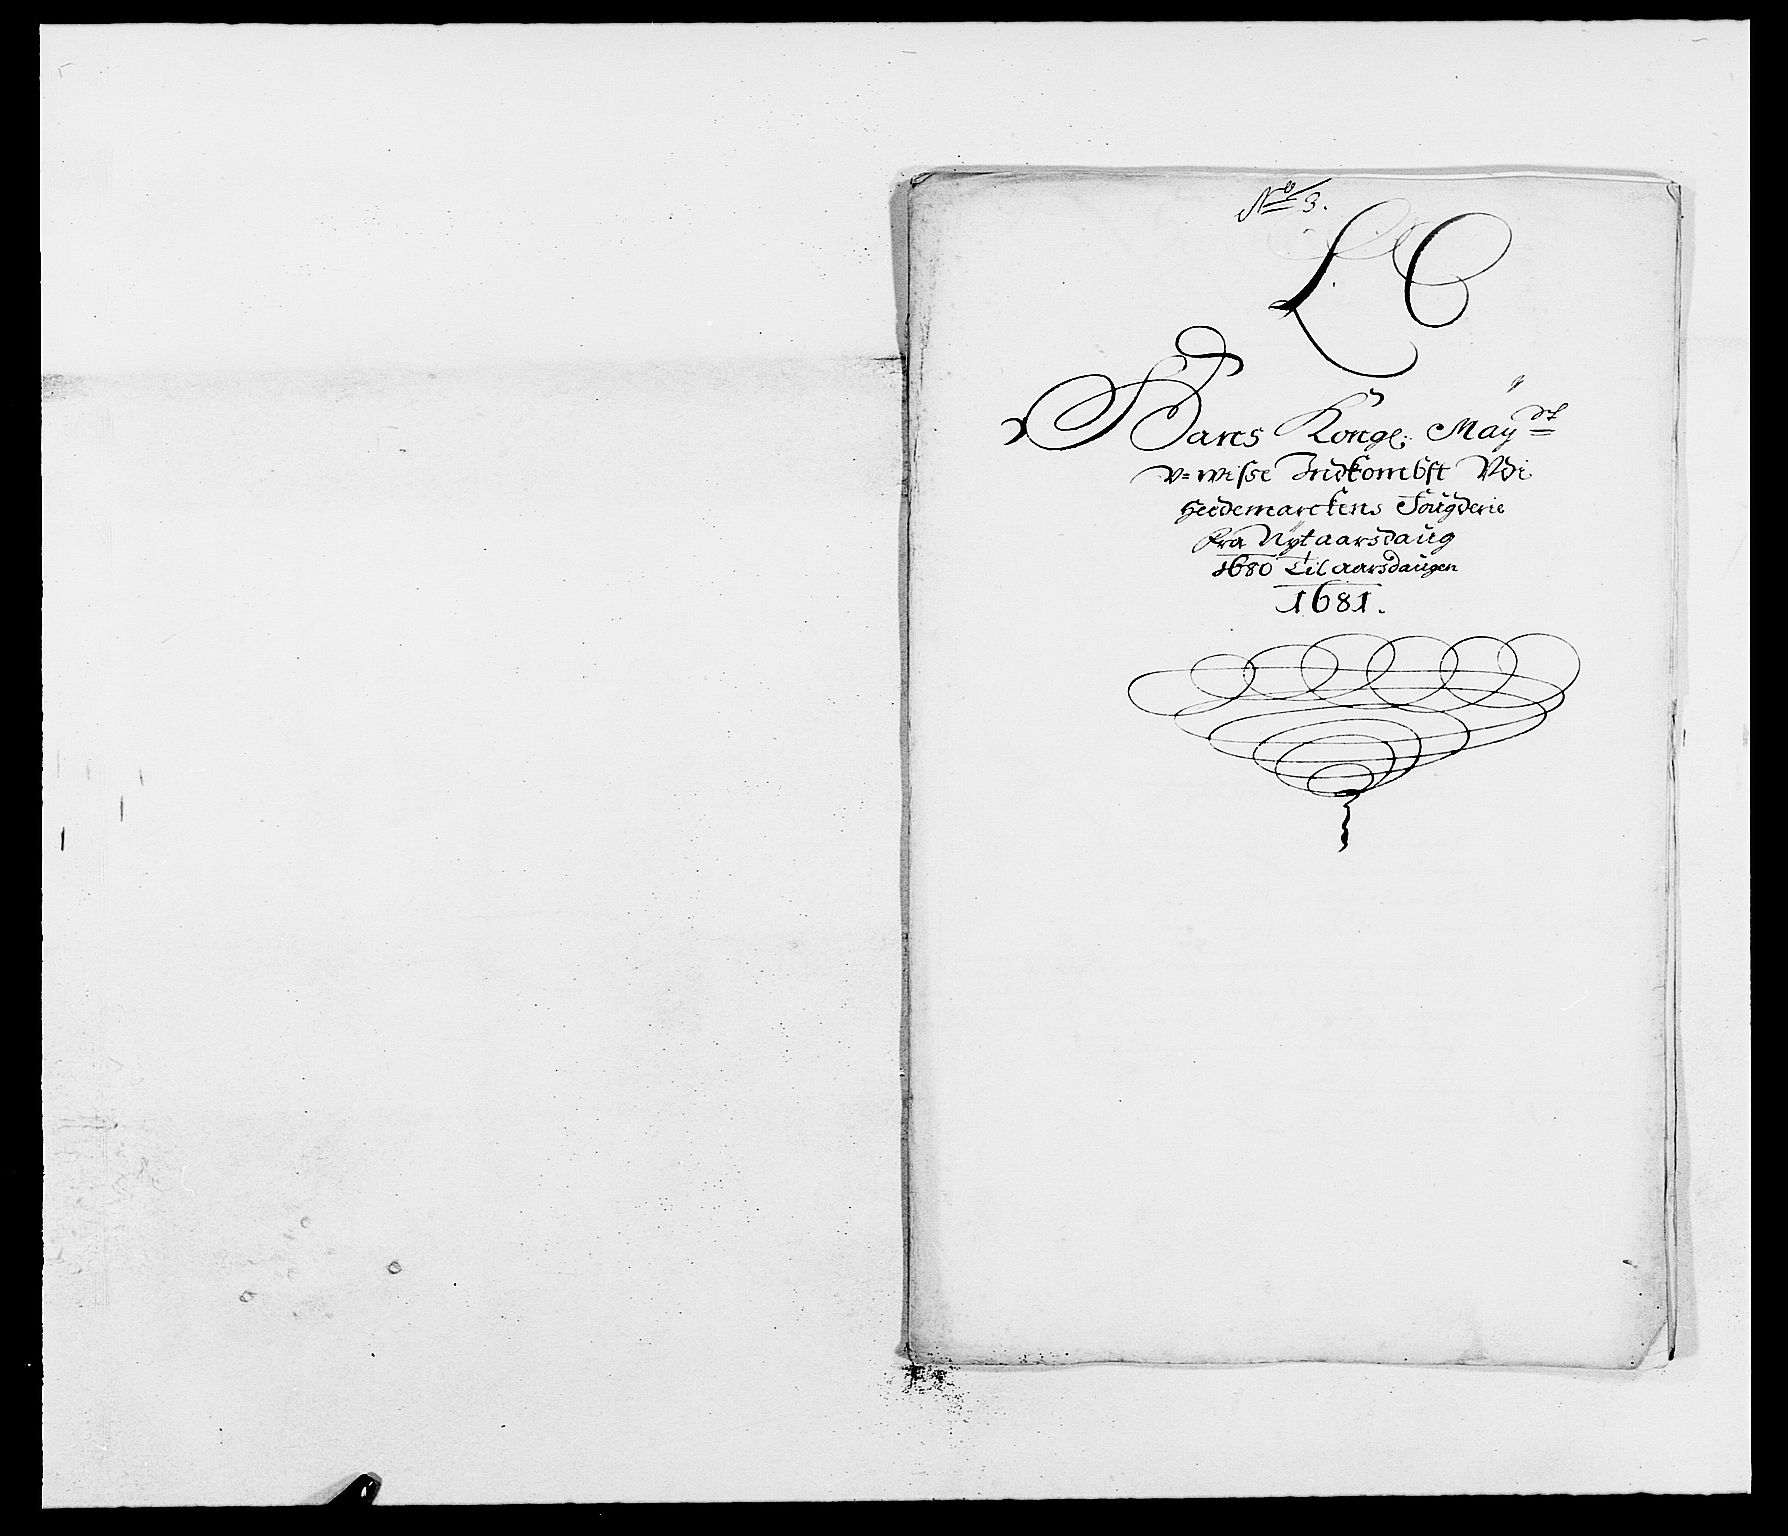 No 3.
L C
Hans Kongl: Mayst
V=wisse Indkombst Vdi
Hedemarckens Fougderie
Fra Nytaarsdaug
1680 Til aarsdaugen
1681.